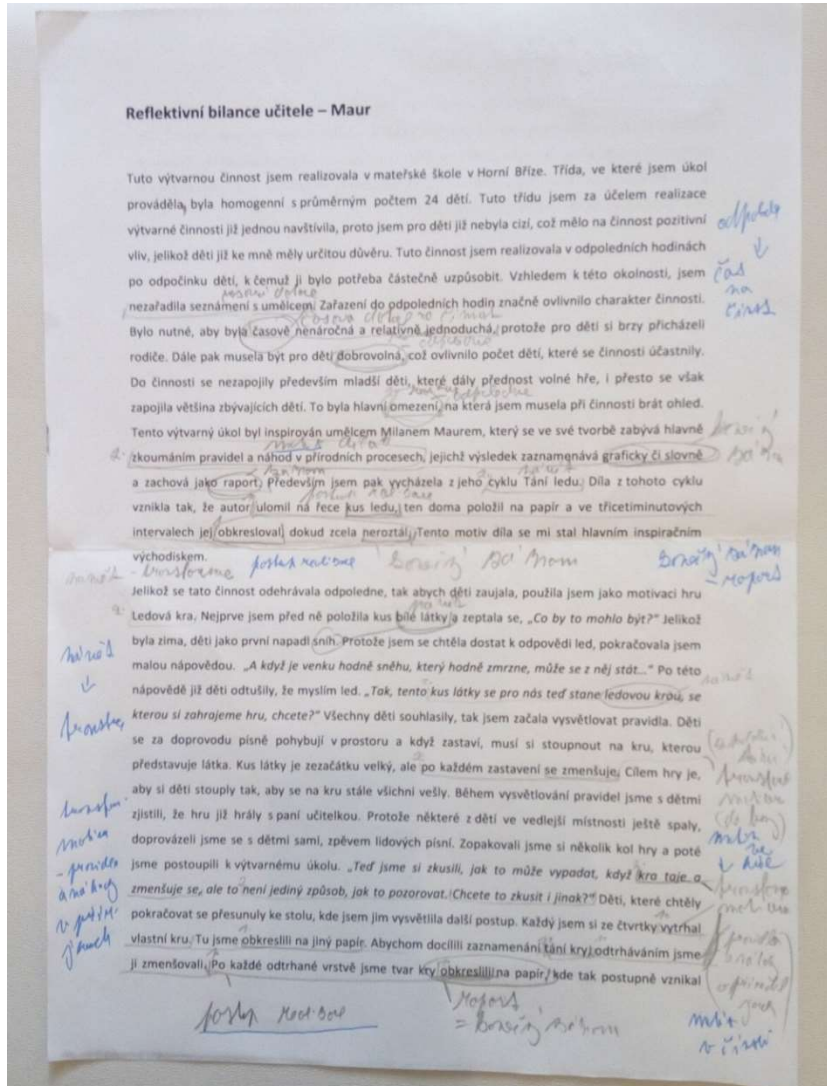 Reflektivní bilance učitele – Maur
Tuto výtvarnou činnost jsem realizovala v mateřské škole v Horní Bříze. Třída, ve které jsem úkol
prováděla, byla homogenní s průměrným počtem 24 dětí. Tuto třídu jsem za účelem realizace
výtvarné činnosti již jednou navštívila, proto jsem pro děti již nebyla cizí, což mělo na činnost pozitivní
vliv, jelikož děti již ke mně měly určitou důvěru. Tuto činnost jsem realizovala v odpoledních hodinách
po odpočinku dětí, k čemuž ji bylo potřeba částečně uzpůsobit. Vzhledem k této okolnosti, jsem
nezařadila seznámení s umělcem. Zařazení do odpoledních hodin značně ovlivnilo charakter činnosti.
Bylo nutné, aby byla časově nenáročná a relativně jednoduchá, protože pro děti si brzy přicházeli
rodiče. Dále pak musela být pro děti dobrovolná, což ovlivnilo počet dětí, které se činnosti účastnily.
Do činnosti se nezapojily především mladší děti, které dály přednost volné hře, i přesto se však
zapojila většina zbývajících dětí. To byla hlavní omezení, na která jsem musela při činnosti brát ohled.
Tento výtvarný úkol byl inspirován umělcem Milanem Maurem, který se ve své tvorbě zabývá hlavně
zkoumáním pravidel a náhod v přírodních procesech, jejichž výsledek zaznamenává graficky či slovně
a zachová jako raport. Především jsem pak vycházela z jeho cyklu Tání ledu. Díla z tohoto cyklu
vznikla tak, že autor ulomil na řece kus ledu, ten doma položil na papír a ve třicetiminutových
intervalech jej obkresloval, dokud zcela neroztál. Tento motiv díla se mi stal hlavním inspiračním
východiskem.
Jelikož se tato činnost odehrávala odpoledne, tak abych děti zaujala, použila jsem jako motivaci hru
Ledová kra. Nejprve jsem před ně položila kus bílé látky a zeptala se, „Co by to mohlo být?“ Jelikož
byla zima, děti jako první napadl sníh. Protože jsem se chtěla dostat k odpovědi led, pokračovala jsem
malou nápovědou. „A když je venku hodně sněhu, který hodně zmrzne, může se z něj stát...“ Po této
nápovědě již děti odtušily, že myslím led. „Tak, tento kus látky se pro nás teď stane ledovou krou, se
kterou si zahrajeme hru, chcete?“ Všechny děti souhlasily, tak jsem začala vysvětlovat pravidla. Děti
se za doprovodu písně pohybují v prostoru a když zastaví, musí si stoupnout na kru, kterou
představuje látka. Kus látky je zezačátku velký, ale po každém zastavení se zmenšuje. Cílem hry je,
aby si děti stouply tak, aby se na kru stále všichni vešly. Během vysvětlování pravidel jsme s dětmi
zjistili, že hru již hrály s paní učitelkou. Protože některé z dětí ve vedlejší místnosti ještě spaly,
doprovázeli jsme se s dětmi sami, zpěvem lidových písní. Zopakovali jsme si několik kol hry a poté
jsme postoupili k výtvarnému úkolu. „Teď jsme si zkusili, jak to může vypadat, když kra taje a
zmenšuje se, ale to není jediný způsob, jak to pozorovat. Chcete to zkusit i jinak?“ Děti, které chtěly
pokračovat se přesunuly ke stolu, kde jsem jim vysvětlila další postup. Každý jsme si ze čtvrtky vytrhal
vlastní kru. Tu jsme obkreslili na jiný papír. Abychom docílili zaznamenání tání kry, odtrháváním jsme
ji zmenšovali. Po každé odtrhané vrstvě jsme tvar kry obkreslili na papír, kde tak postupně vznikal